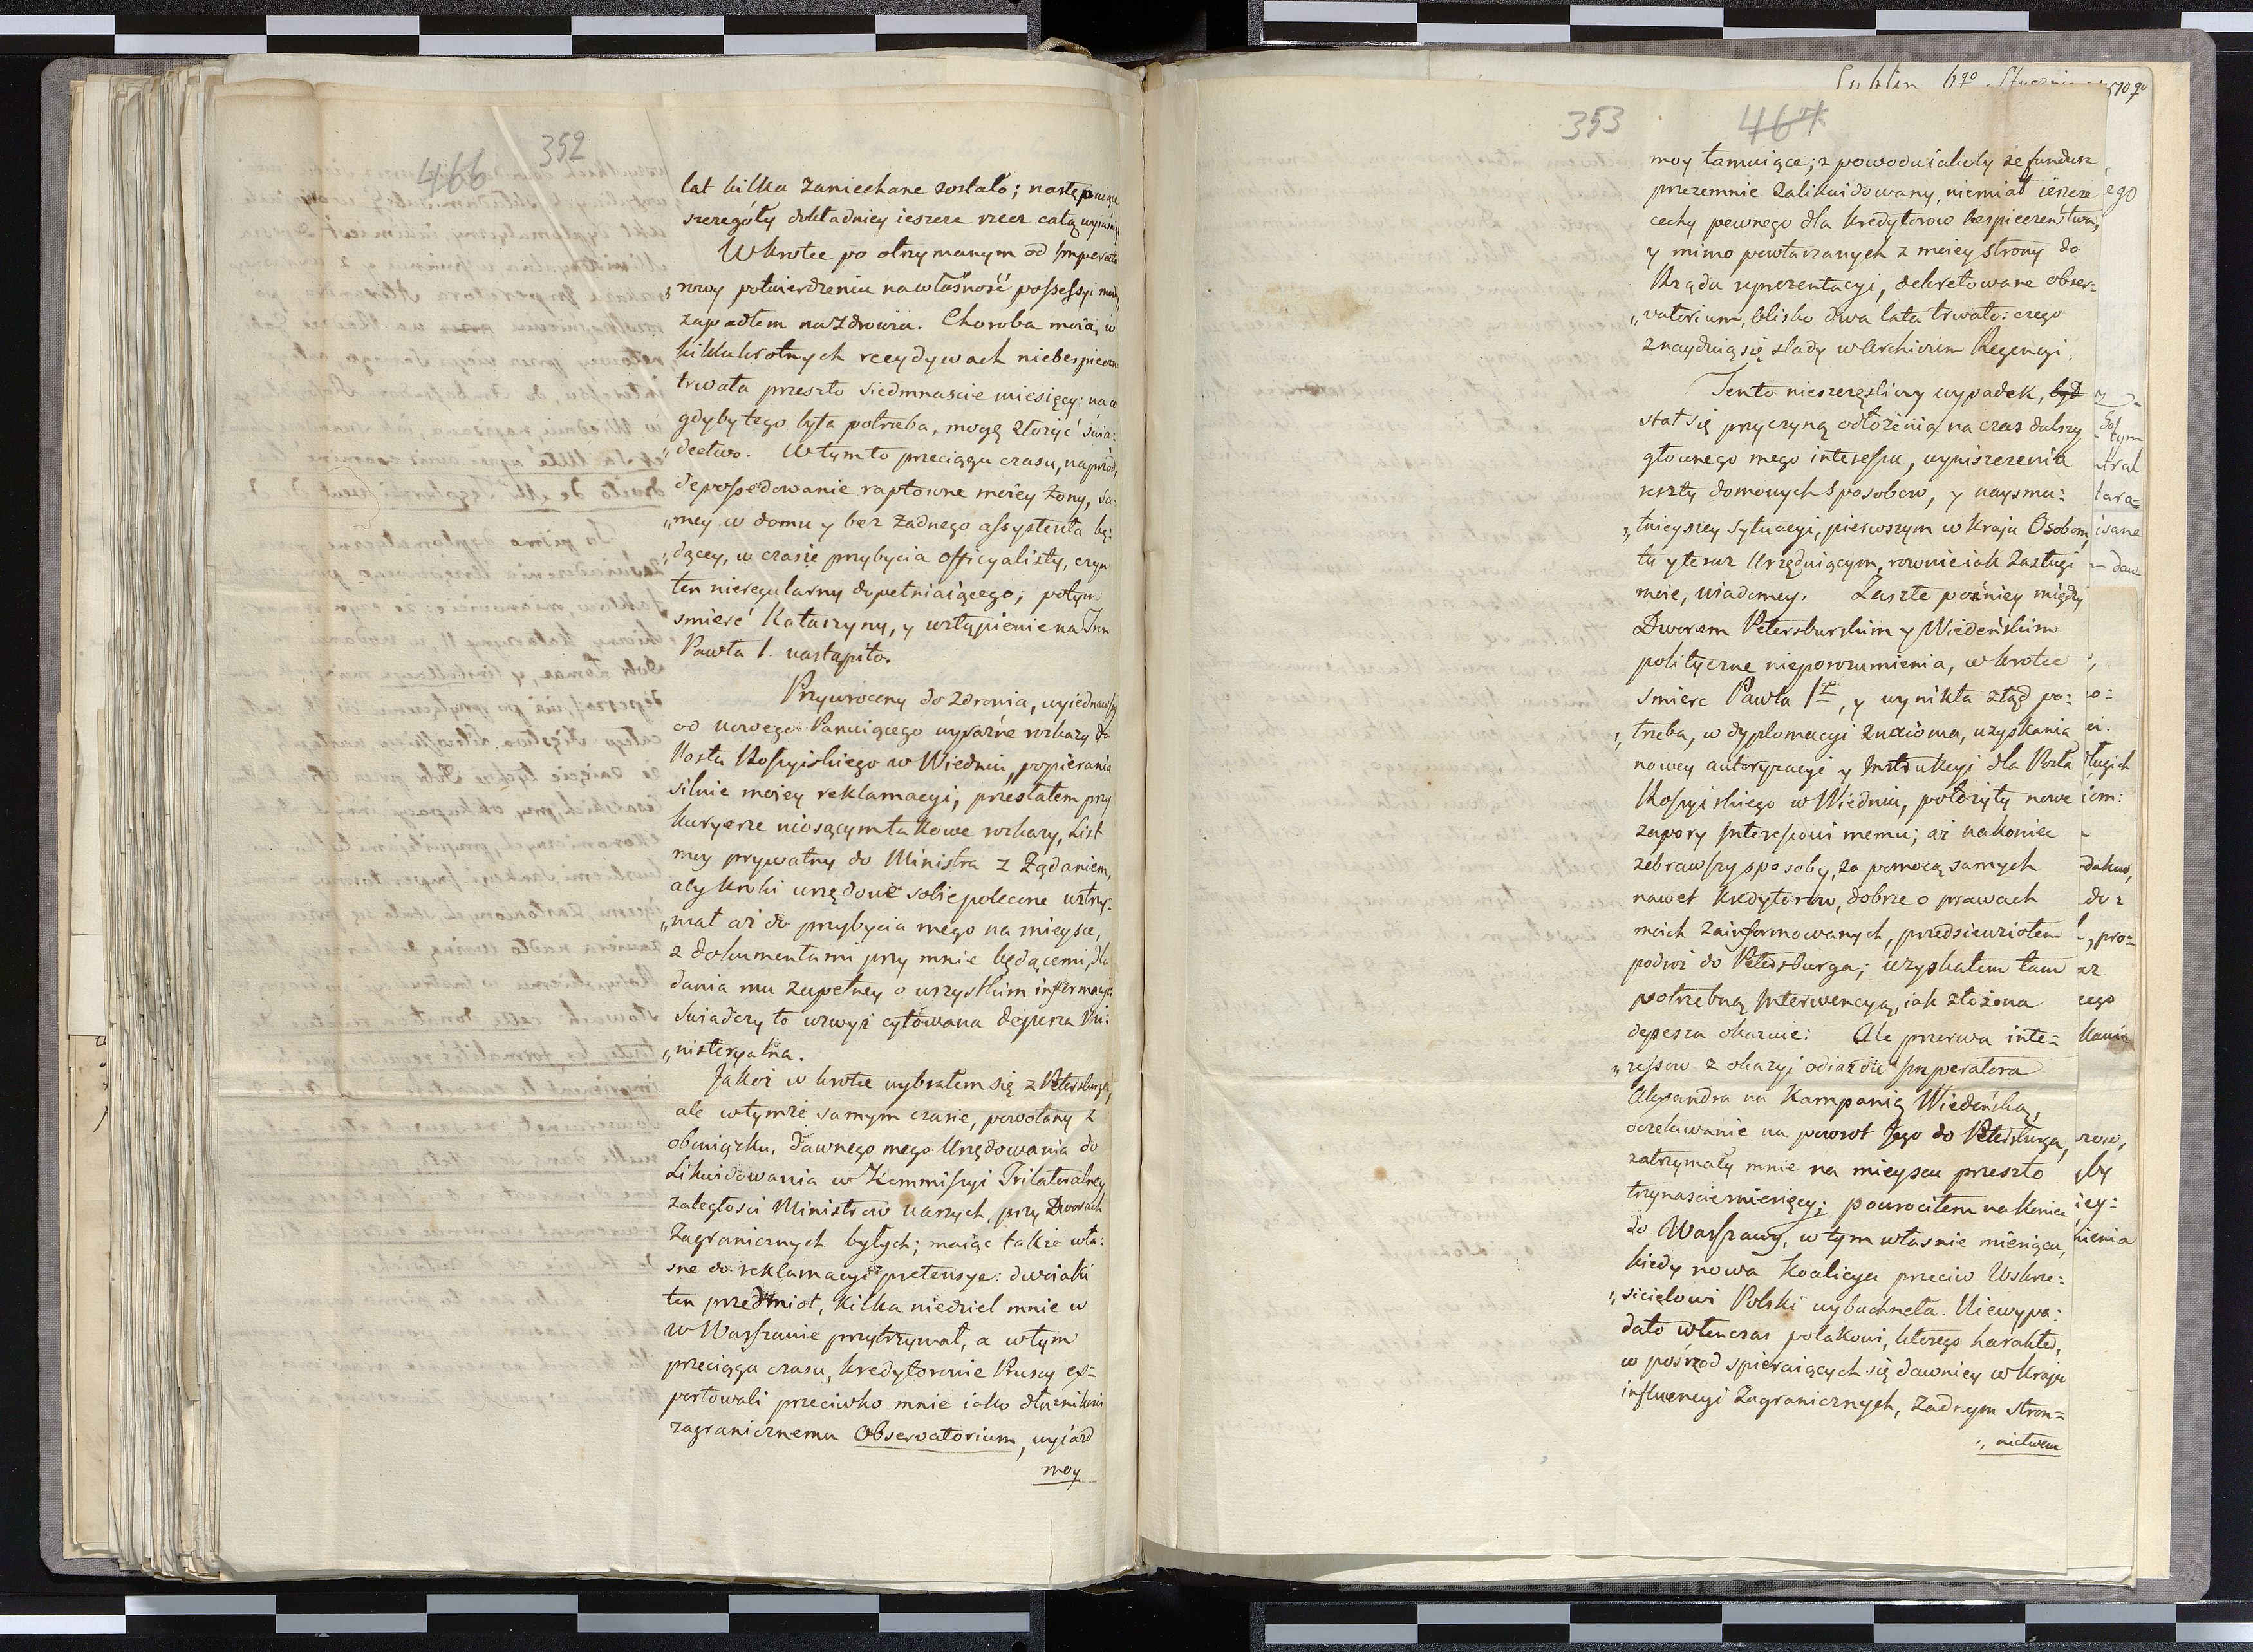 352
466
lat kilka zaniechane zostało; następuiące
szczegóły dokładniey ieszcze rzecz całą wyiaśnią
Wkrotce po otrzymanym od Imperato
„rowy potwierdzeniu na własność possessyi moiey
zapadłem na zdrowiu. Choroba moia, w
kilkukrotnych recydywach niebespieczna
trwała przeszło siedmnaście miesięcy: na co
gdyby tego była potrzeba, mogę złożyć świa:
„dectwo. W tym to przeciągu czasu, naprzód,
depossedowanie raptowne moiey żony, sa:
„mey w domu y bez żadnego assystenta bę:
„dącey, w czasie przybycia officyalisty, czyn
ten nieregularny dopełniaiącego; potym
smierć Katarzyny, y wstąpienie na Tron
Pawła I. nastąpiło.
Przywrocony do zdrowia, wyiednawszy
od nowego Panuiącego wyraźne rozkazy do
Posła Rossyiskiego w Wiedniu, popierania
silnie moiey reklamacyi, przesłałem przy
kuryerze niosącym takowe rozkazy, List
moy prywatny do Ministra z żądaniem,
aby kroki urzędowe sobie polecone wstrzy:
„mał aż do przybycia mego na mieysce,
z dokumentami przy mnie będącemi, dla
dania mu zupełney o wszystkim informacyi
Swiadczy to wzwyż cytowana depesza Mi:
„nisteryalna.
Jakoż w krotce wybrałem się z Petersburga,
ale w tymże samym czasie, powołany z
obowiązku, dawnego mego Urzędowania do
Likwidowania w Kommissyi Trilateralney
zaległości Ministrow naszych, przy Dworach
Zagranicznych byłych; maiąc także wła:
sne do reklamacyi pretensye: dwoiaki
ten przedmiot, kilka niedziel mnie w
w Warszawie przytrzymał, a w tym
przeciągu czasu, kredytorowie Pruscy ex=
portowali przeciwko mnie iako dłużnikowi
zagranicznemu Observatorium, wyiazd
moy
Lublin 6go
1810go
353
467
moy tamuiące; z powodu iakoby że fundusz
przezemnie zalikwidowany, niemiał ieszcze
cechy pewnego dla kredytorow bespieczeństwa,
y mimo powtarzanych z moiey strony do
Rządu reprezentacyi, dekretowane obser=
„vatorium, blisko dwa lata trwało: czego
znayduią się slady w Archivum Regencyi.
Tento nieszczęśliwy wypadek, był
stał się przyczyną odłożenia na czas dalszy,
głownego mego interessu, wyniszczenia
reszty domowych sposobow, y naysmu:
„tnieyszey sytuacyi, pierwszym w kraju Osobom,
tu y teraz Urzęduiącym, rownie iak zasługi
moie, wiadomey. Zaszłe pózniey między
Dworem Petersburskim y Wiedeńskim
polityczne nieporozumienia, wkrotce
smierc Pawła Igo, y wynikła ztąd po:
„trzeba, w dyplomacyi znaioma, uzyskania
nowey autoryzacyi y Instrukcyi dla Posła
Rossyiskiego w Wiedniu, położyły nowe
zapory Interessowi memu; aż nakoniec
zebrawszy sposoby, za pomocą samych
nawet kredytorow, dobrze o prawach
moich zainformowanych, przedsiewziołem
podroż do Petersburga; uzyskałem tam
potrzebną Interwencyą, iak złożona
depesza okazuie: Ale przerwa inte=
„ressow z okazyi odiazdu Imperatora
Alexandra na Kampanią Wiedeńską,
oczekiwanie na powrot Jego do Petersburga,
zatrzymały mnie na mieyscu przeszło
trzynascie miesięcy; powrociłem nakoniec
do Warszawy, w tym własnie miesiącu,
kiedy nowa Koalicya przeciw Wskrze=
„sicielowi Polski wybuchneła. Niewypa:
dało wtenczas polakowi, ktorego harakter,
w pośrzod spieraiących się dawniey w kraju
influencyi Zagranicznych, żadnym stron=
„nictwem